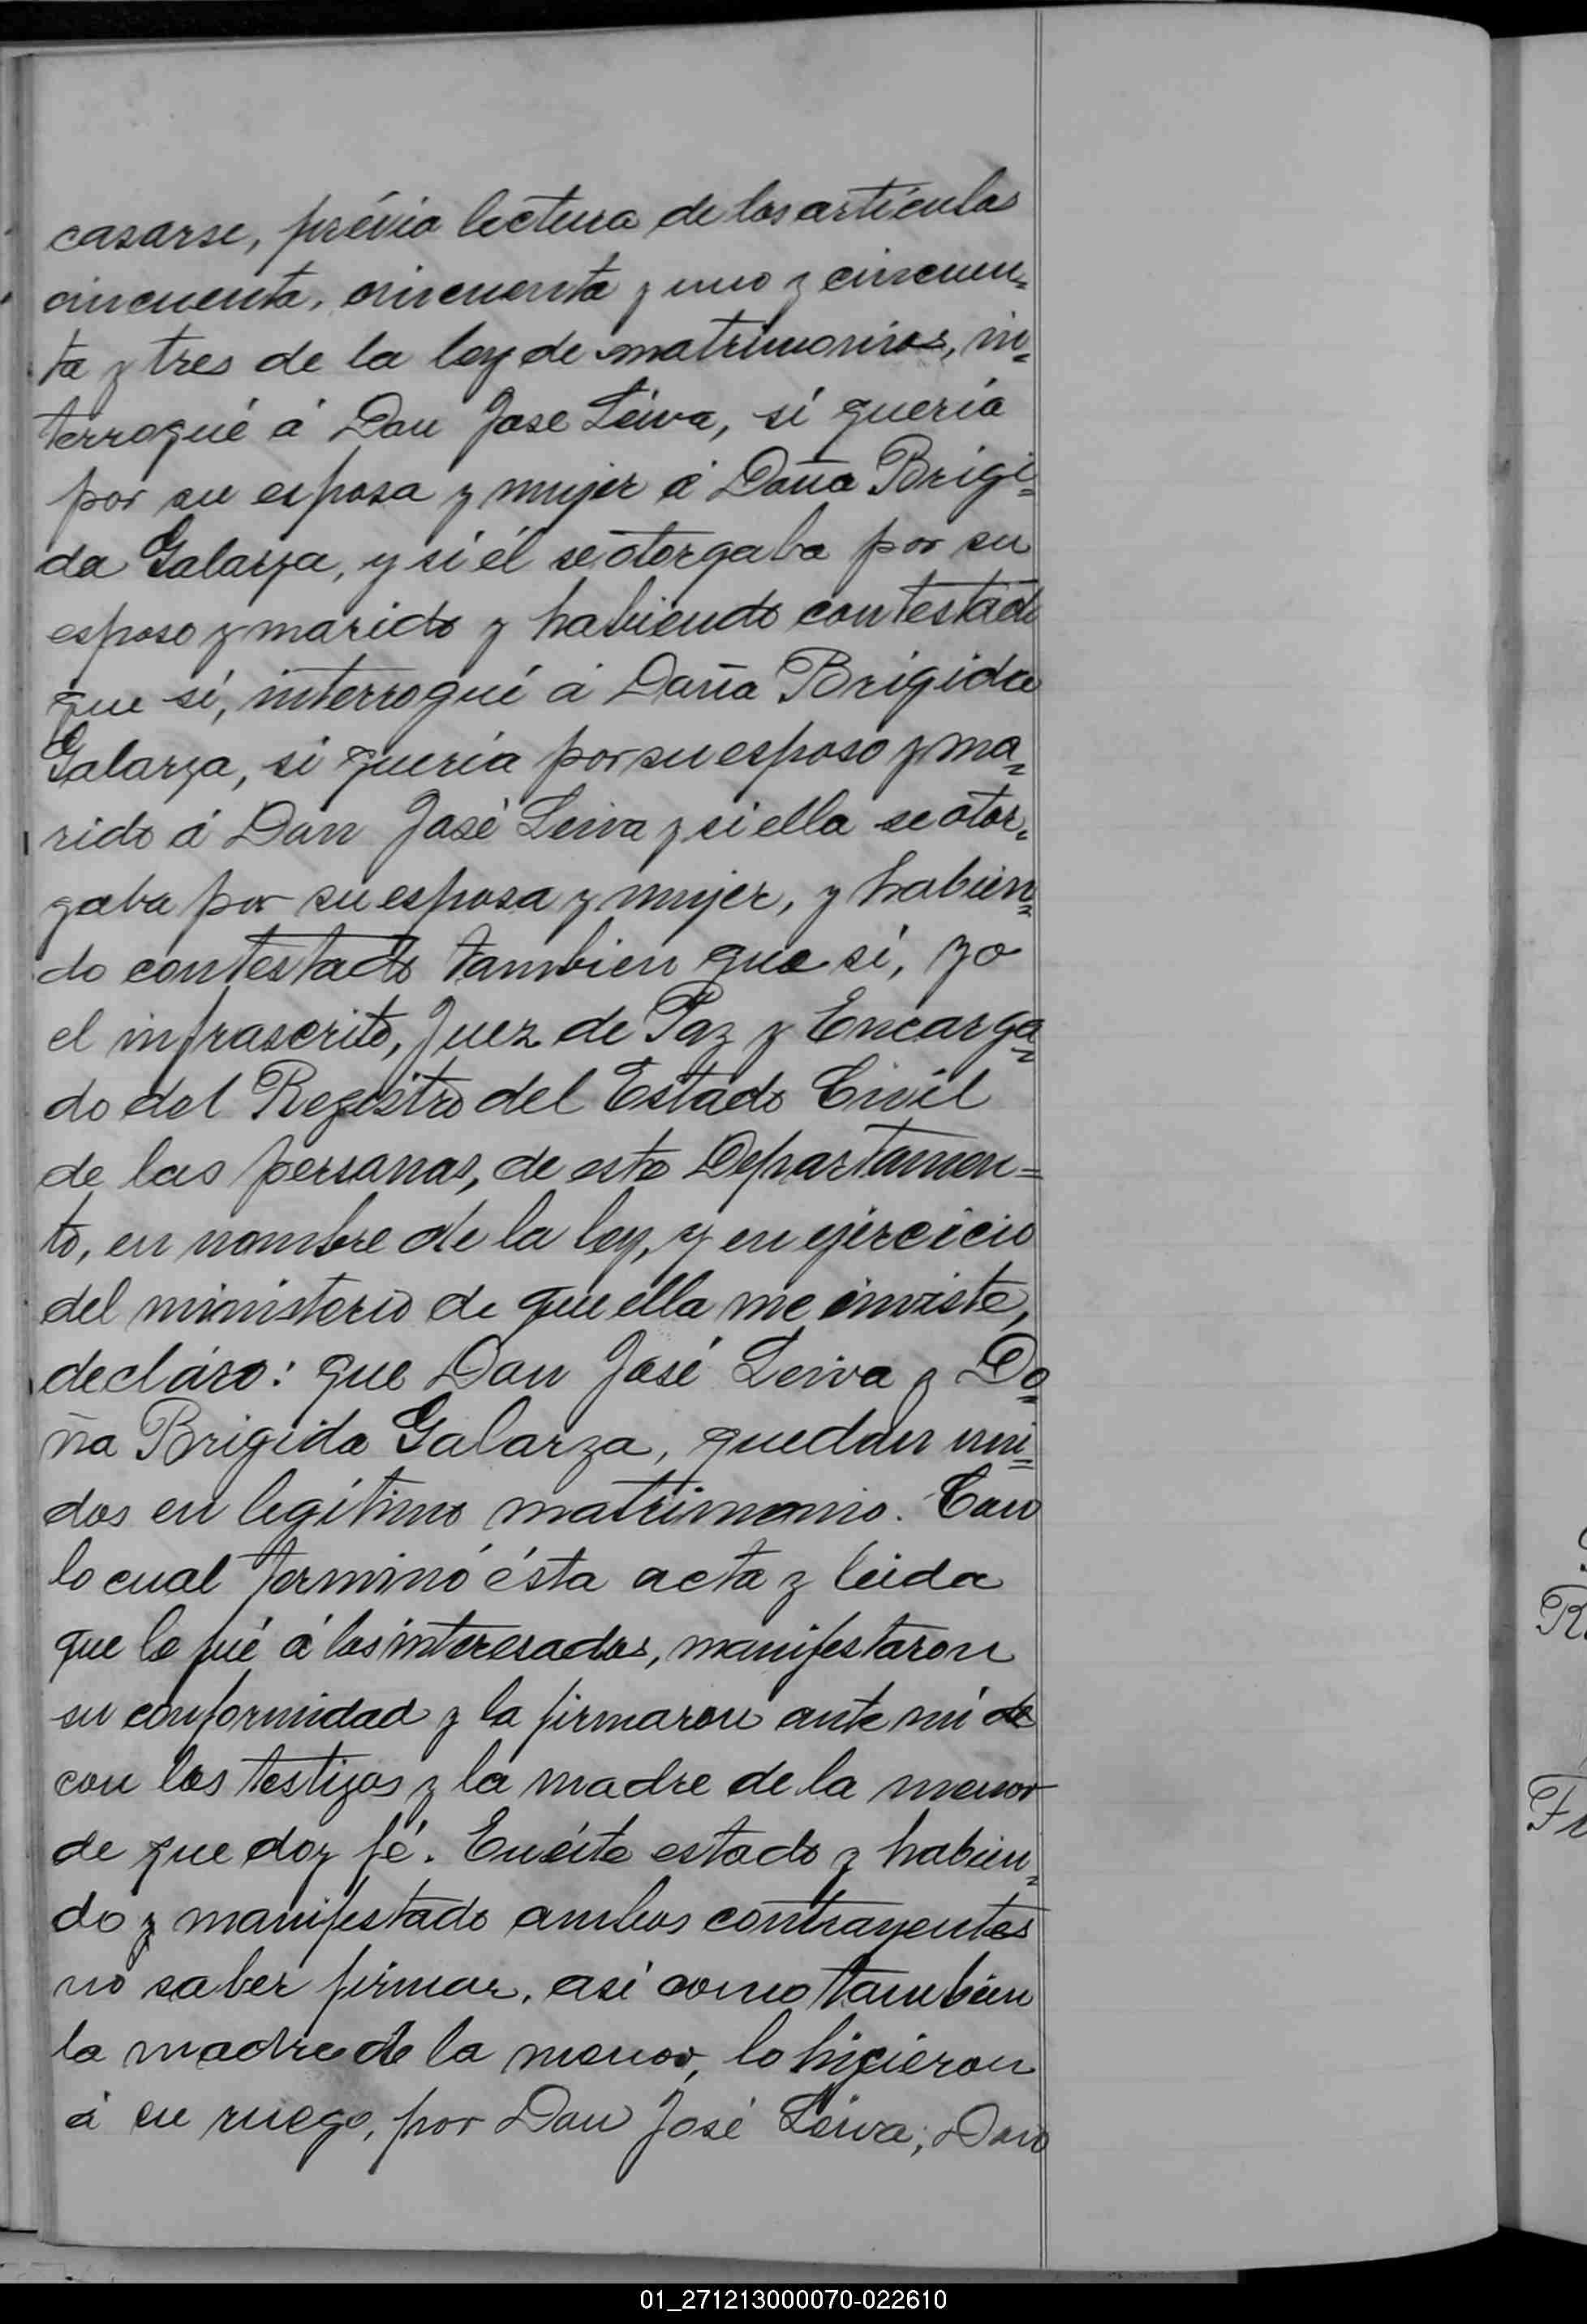 casarse, prévia lectura de los artículos
cincuenta, cincuenta y uno y cincuen=
ta y tres de la ley de matrimonios, in=
terrogué á Don Jose Leiva, si quería
por su esposa y mujer á Doña Brigi=
da Galarza, y si él se otorgaba por su
esposo y marido y habiendo contestado
que sí, interrogué á Doña Brígida
Galarza, si quería por su esposo y ma=
rido á Don José Leiva y si ella se otor=
gaba por su esposa y mujer, y habien=
do contestado tambien que sí, yo
el infrascrito, Juez de Paz y Encarga=
do del Registro del Estado Civil
de las personas, de este Departamen=
to, en nombre de la ley, y en ejercicio
del ministerio de que ella me inviste,
decláro: que Don José Leiva y Do=
ña Brigida Galarza, quedan uni=
dos en legítimo matrimonio. Con
lo cual terminó ésta acta y leida
que le fué á los interesados, manifestaron
su conformidad y la firmaron ante mí de
con los testigos y la madre de la menor
de que doy fé. En éste estado y habien=
do y manifestado ambos contrayentes
no saber firmar, asi como tambien
la madre de la menor, lo hicieron
á su ruego, por Don José Leiva, Don
R
Fr
01_271213000070-022610